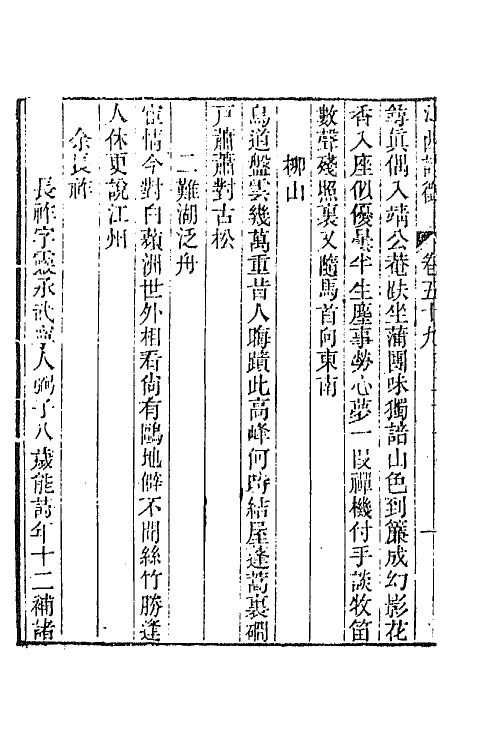 江西詩徵 卷五十九 一
尋眞偶入靖公菴趺坐蒲團味獨諳山色到簾成幻影花
香入座似優曇半生塵事勞心夢一段禪機付手談牧笛
數聲殘照裏又隨馬首向東南
柳山
鳥道盤雲幾萬重昔人晦蹟此高峰何時結屋蓬蒿裏磵
戸蕭蕭對古松
二難湖泛舟
宦情今對白蘋洲世外相看尙有鷗地僻不聞絲竹勝逢
人休更說江州
余長祚
長祚字 承武寧人 子八歲能詩年十二補諸